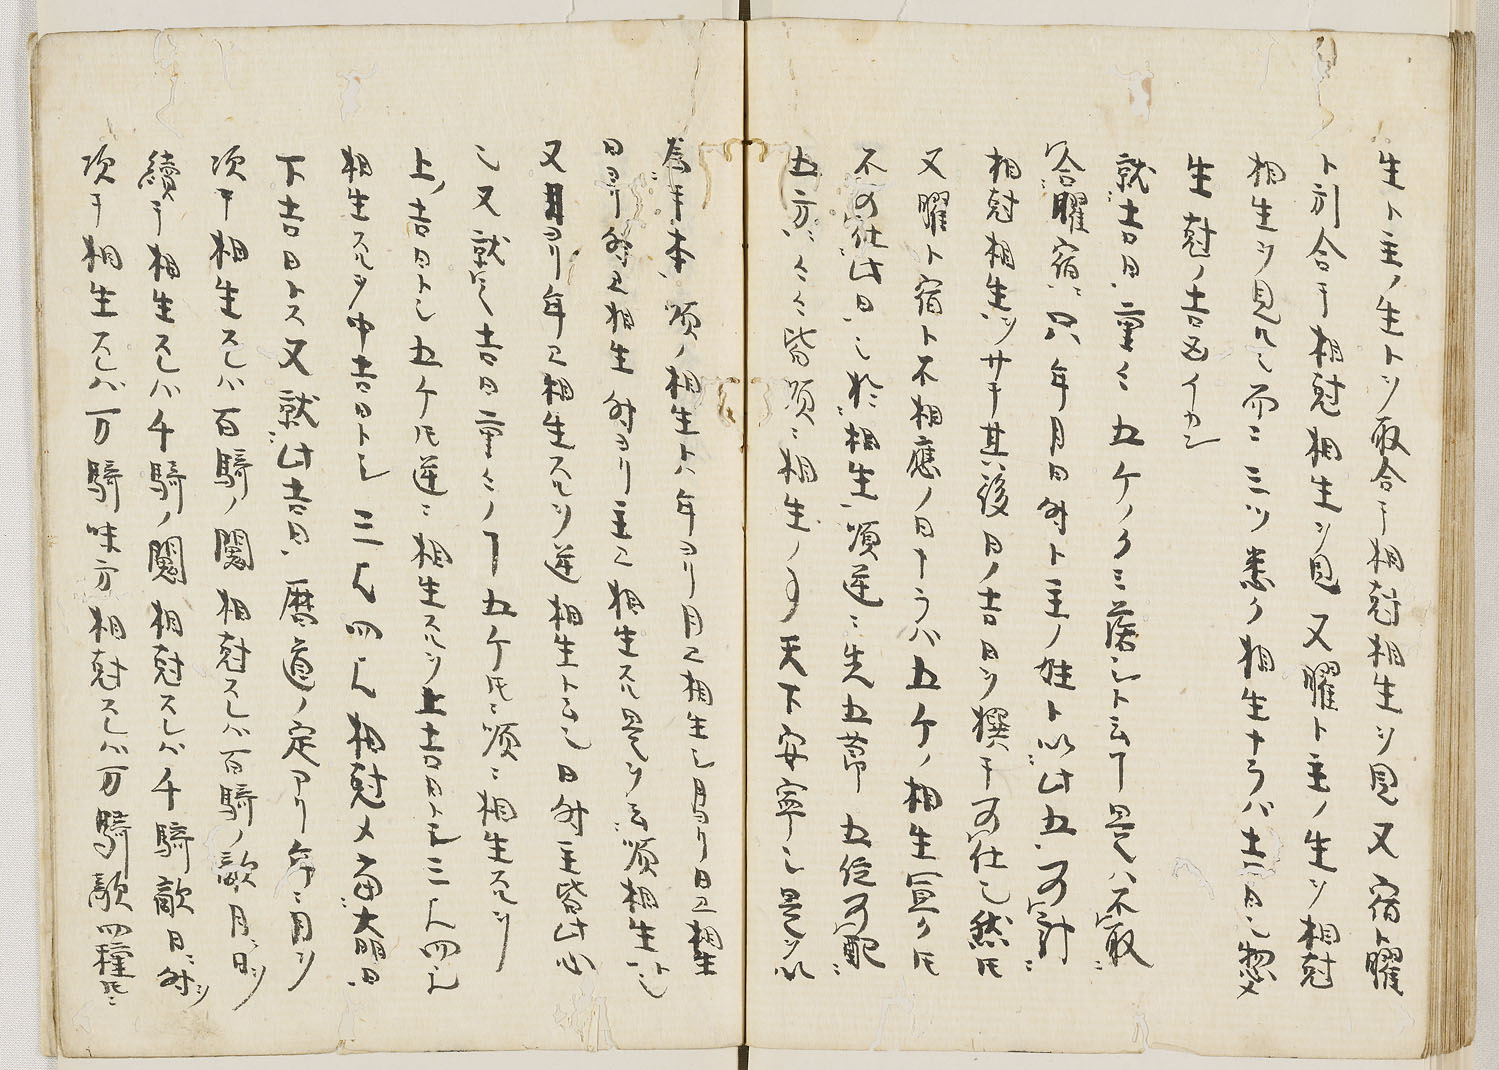 生ト主ノ生トヲ取合テ相尅相生ヲ見又宿ト曜
ト引合テ相尅相生ヲ見又曜ト主ノ生ヲ相尅
相生ヲ見ル也而ニ三ツ悉ク相生ナラバ吉日也惣メ
生尅ノ吉凶イカン
就吉日重々五ケノクミ落シト云丅是ハ不取
合曜宿只年月日時ト主ノ姓ト以此五可計
相尅相生ヲサテ其後日ノ吉日ヲ撰テ可仕也然𪜈
又曜ト宿ト不相應ノ日ナラバ五ケノ相生宜ク𪜈
不可仕此日也於相生順逆ニ先五節五位可配
五方々々皆順ニ相生ノ丅天下安寧也是ヲ以
為本順ノ相生ト八年ヨリ月エ相生シ月ヨリ日エ相生
日ヨリ時エ相生時ヨリ主エ相生スルヲ是ヲ云順相生ト也
又日ヨリ年エ相生スルヲ逆相生ト云也日時主皆此心
也又就之吉日重々ノ丅五ケ𪜈ニ順ニ相生スルヲ
上ノ吉日トシ五ケ𪜈逆ニ相生スルヲ上吉日トモ三ハ四ハ
相生スルヲ中吉日トシ三ハ四ハ相尅メ當大明日
下吉日トス又就此吉日曆道ノ定アリ年ニ月ヲ
次テ相生スレバ百騎ノ闘相尅スレバ百騎ノ敵月ニ日ヲ
續テ相生スレバ千騎ノ闘相尅スレバ千騎敵日ニ時ヲ
次テ相生スレバ万騎味方相尅スレバ万騎敵四種𪜈ニ